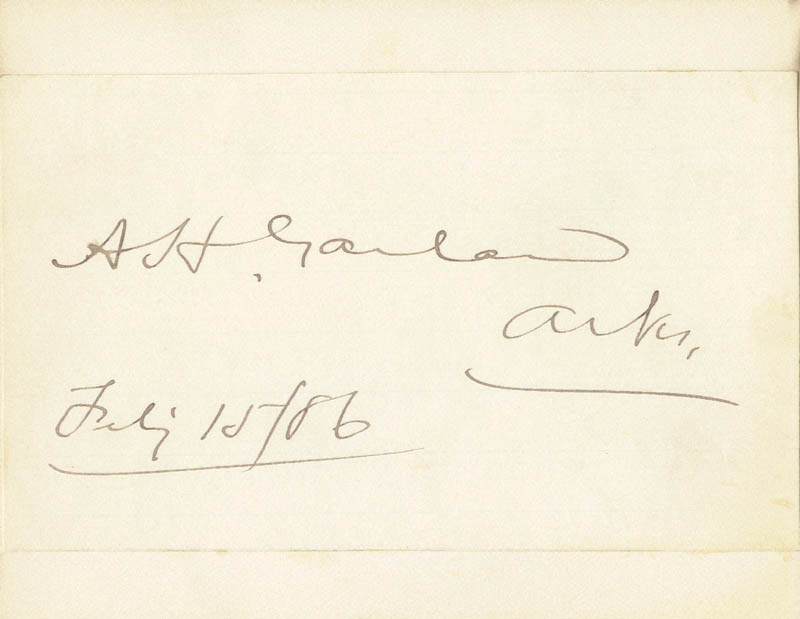 A H. Garland
Arks.
Feby 15/86